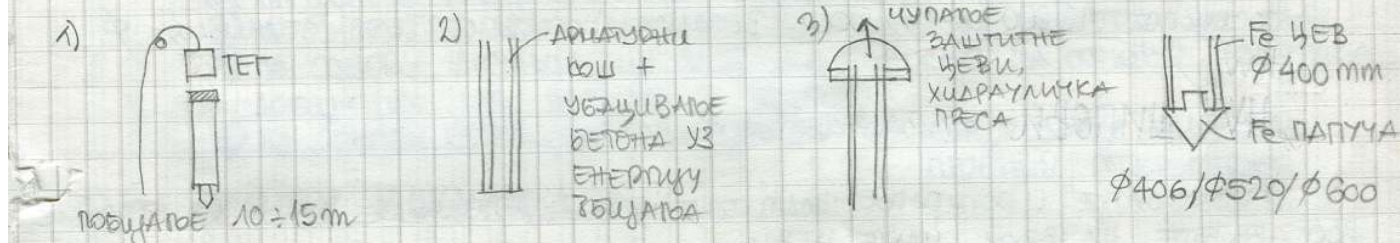 1)
ТЕГ
ПОБИЈАЊЕ 10÷15m
2)
АРМАТУРНИ
КОШ +
УБАЦИВАЊЕ
БЕТОНА УЗ
ЕНЕРГИЈУ
ЗБИЈАЊА
3)
ЧУПАЊЕ
ЗАШТИТНЕ
ЦЕВИ,
ХИДРАУЛИЧКА
ПРЕСА
Fe ЦЕВ
Ø 400 mm
Fe ПАПУЧА
Ø406/Ø520/Ø600